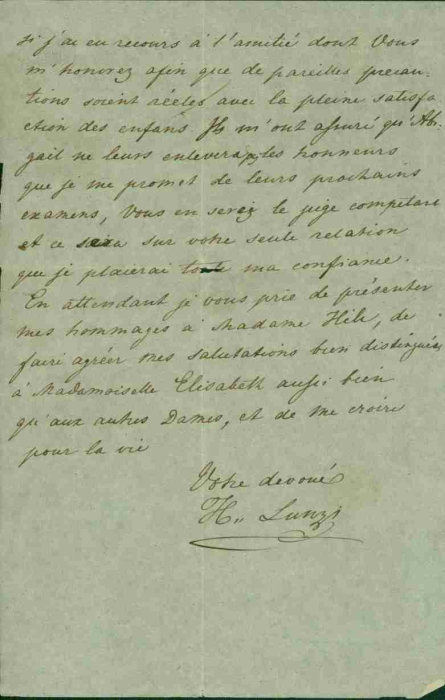 si j'ai eu recours à l'amitié dont Vous
m'honorez afin que de pareilles precau-
tions soient réeles avec la pleine satisfa-
ction des enfans. Ils m'ont assuré qu'Abi-
gail ne leurs enlevera les honneurs
que je me promet de leurs prochains
examens, Vous en serez le juge competant
et ce sera sur votre seule relation
que je placerai toute ma confiance.
En attendant je vous prie de présenter
mes hommages à Madame Hile, de
faire agréer mes salutations bien distinguées
à Madamoiselle Elisabeth aussi bien
qu'aux autres Dames, et de me croire
pour la vie
Votre devoué
H. Lunzi